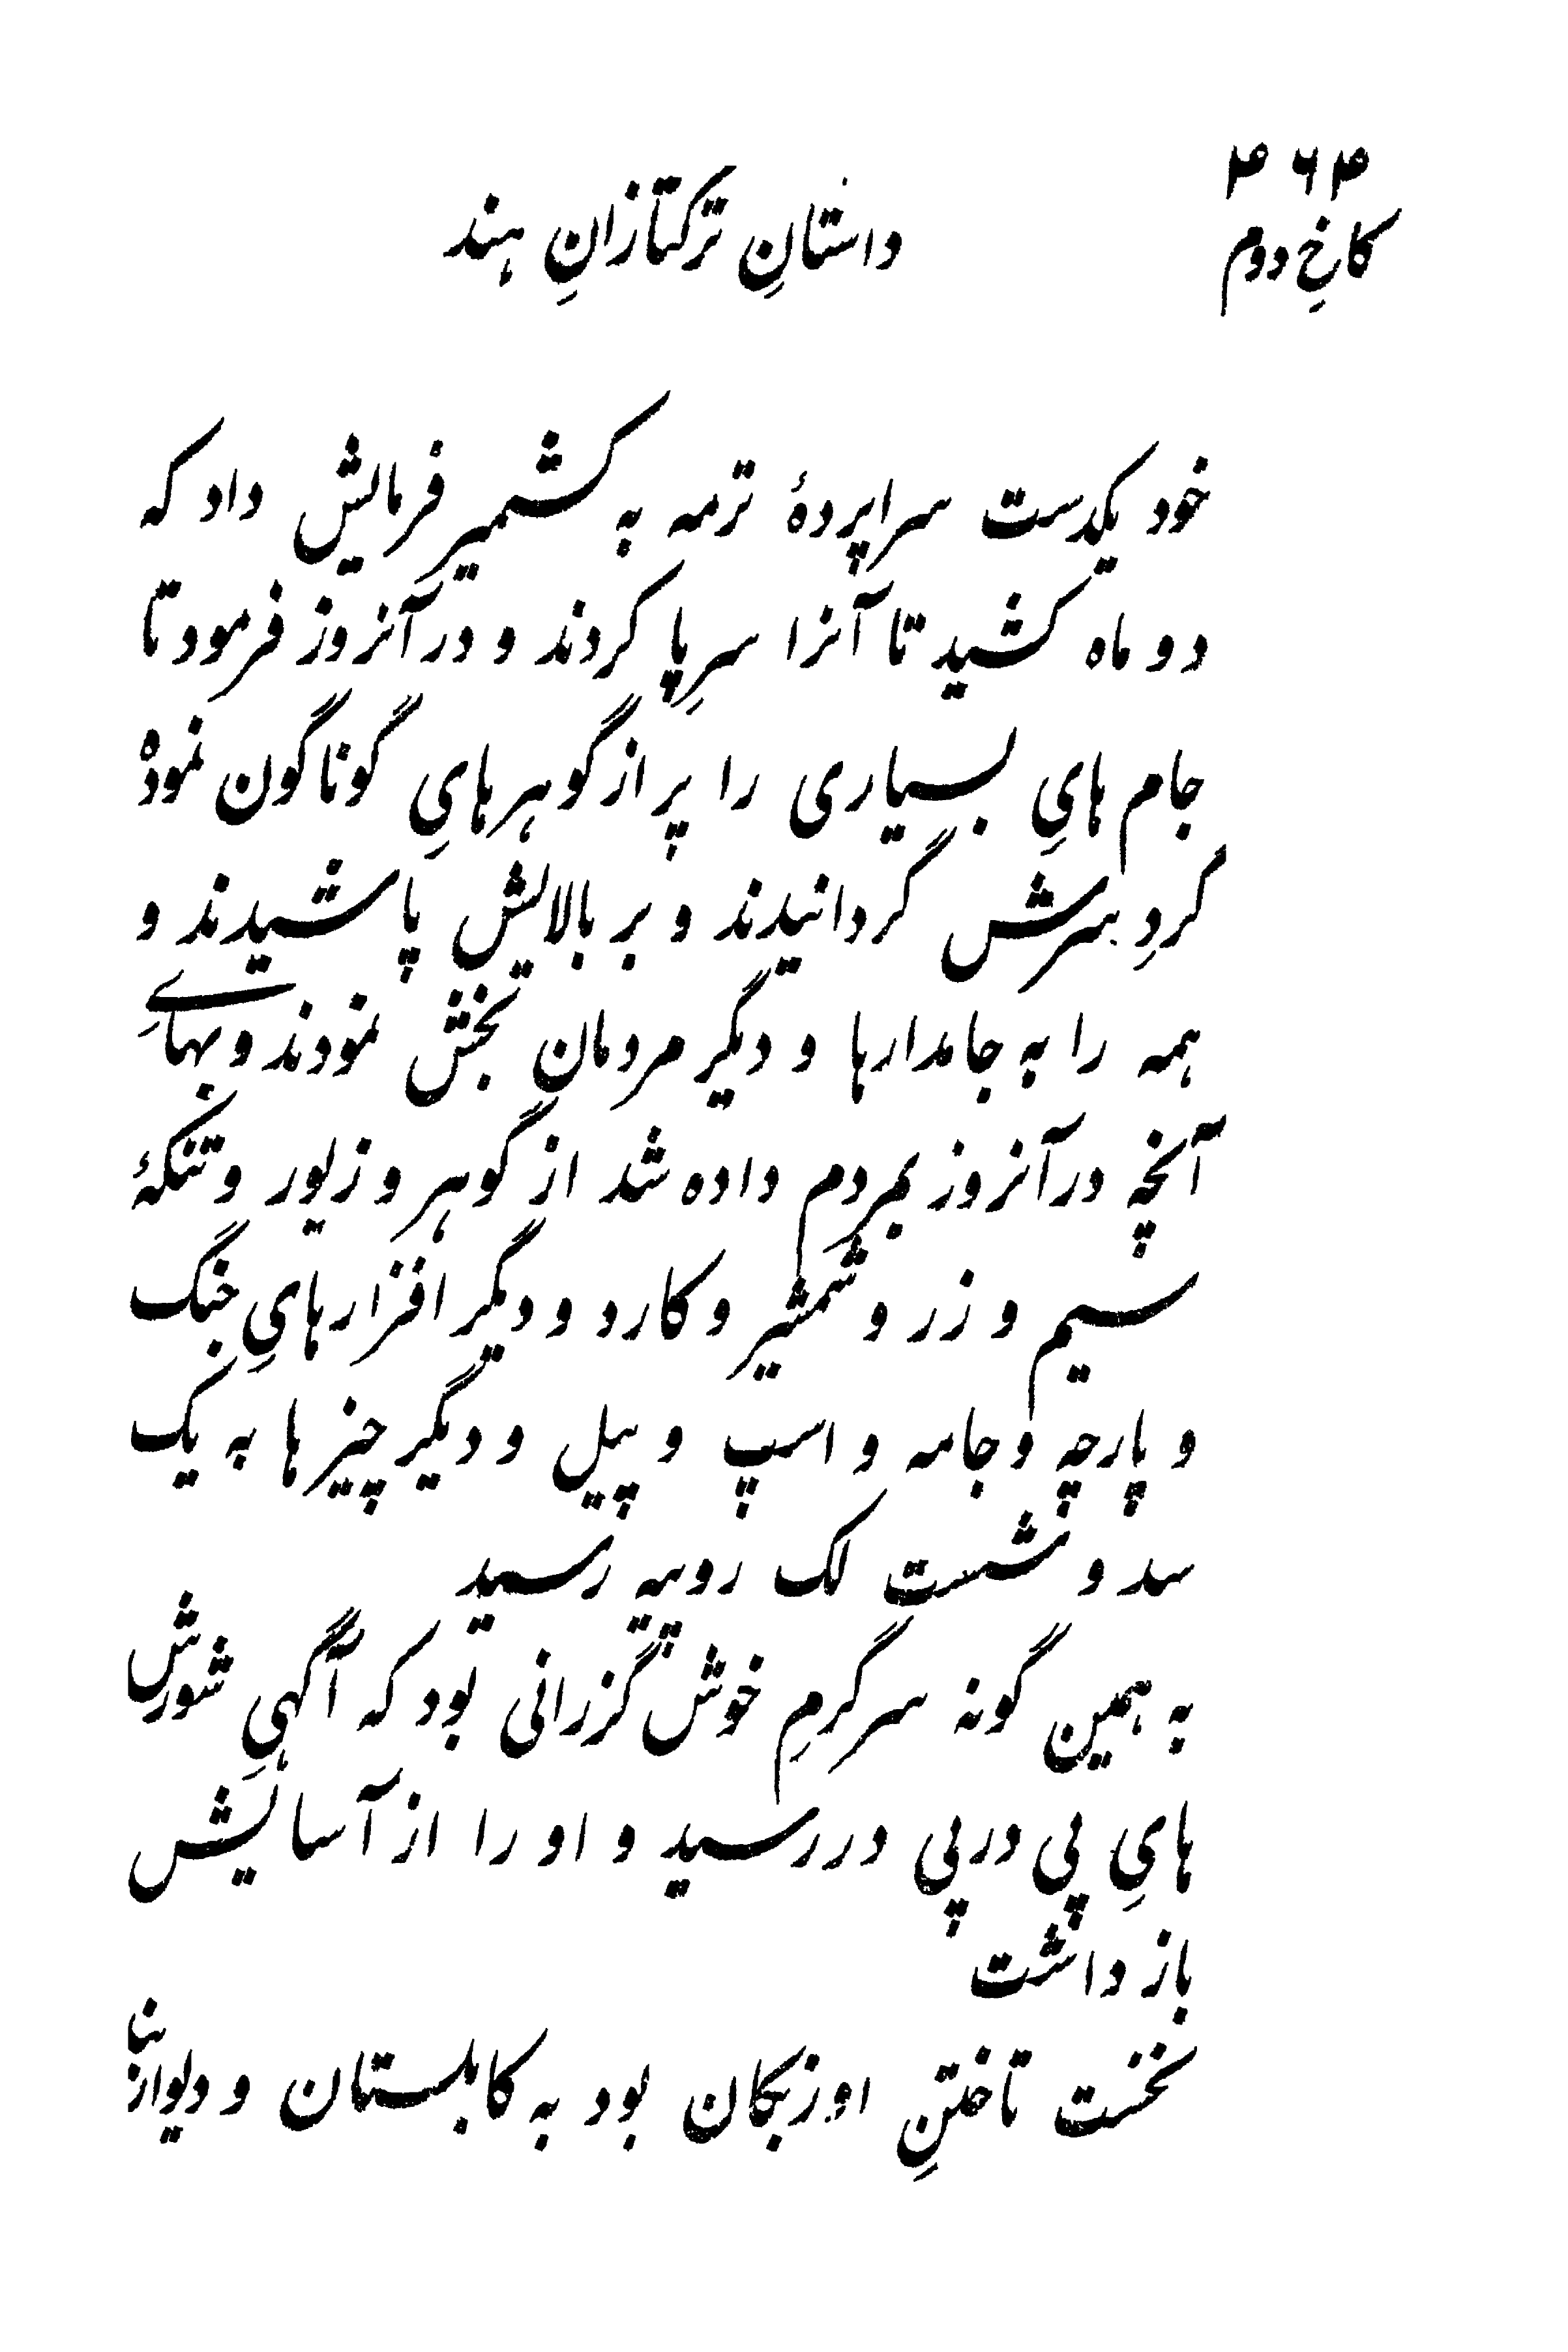 ۴۶۴
کاخِ دوم
داستانِ ترکتازانِ هند
خود یکدست سراپردهٔ ترمه به کشمیر فرمایش داد که
دو ماه کشید تا آنرا سرِپا کردند و در آنروز فرمود تا
جام هایِ بسیاری را پر از گوهرهایِ گوناگون نموده
گردِ سرش گردانیدند و بر بالایش پاشیدند و
همه را به جامدارها و دیگر مردمان بخش نمودند و بهایِ
آنچه در آنروز بمردم داده شد از گوهر و زیور و تنکهٔ
سیم و زر و شمشیر و کارد و دیگر افزارهایِ جنگ
و پارچه و جامه و اسپ و پیل و دیگر چیزها به یک
سد و شست لک روپیه رسید
به همین گونه سرگرمِ خوش گزرانی بود که آگهیِ شورش
هایِ پی در پی در رسید و او را از آسایش
باز داشت
نخست تاختنِ اوزبکان بود به کابلستان و دیوار بنا